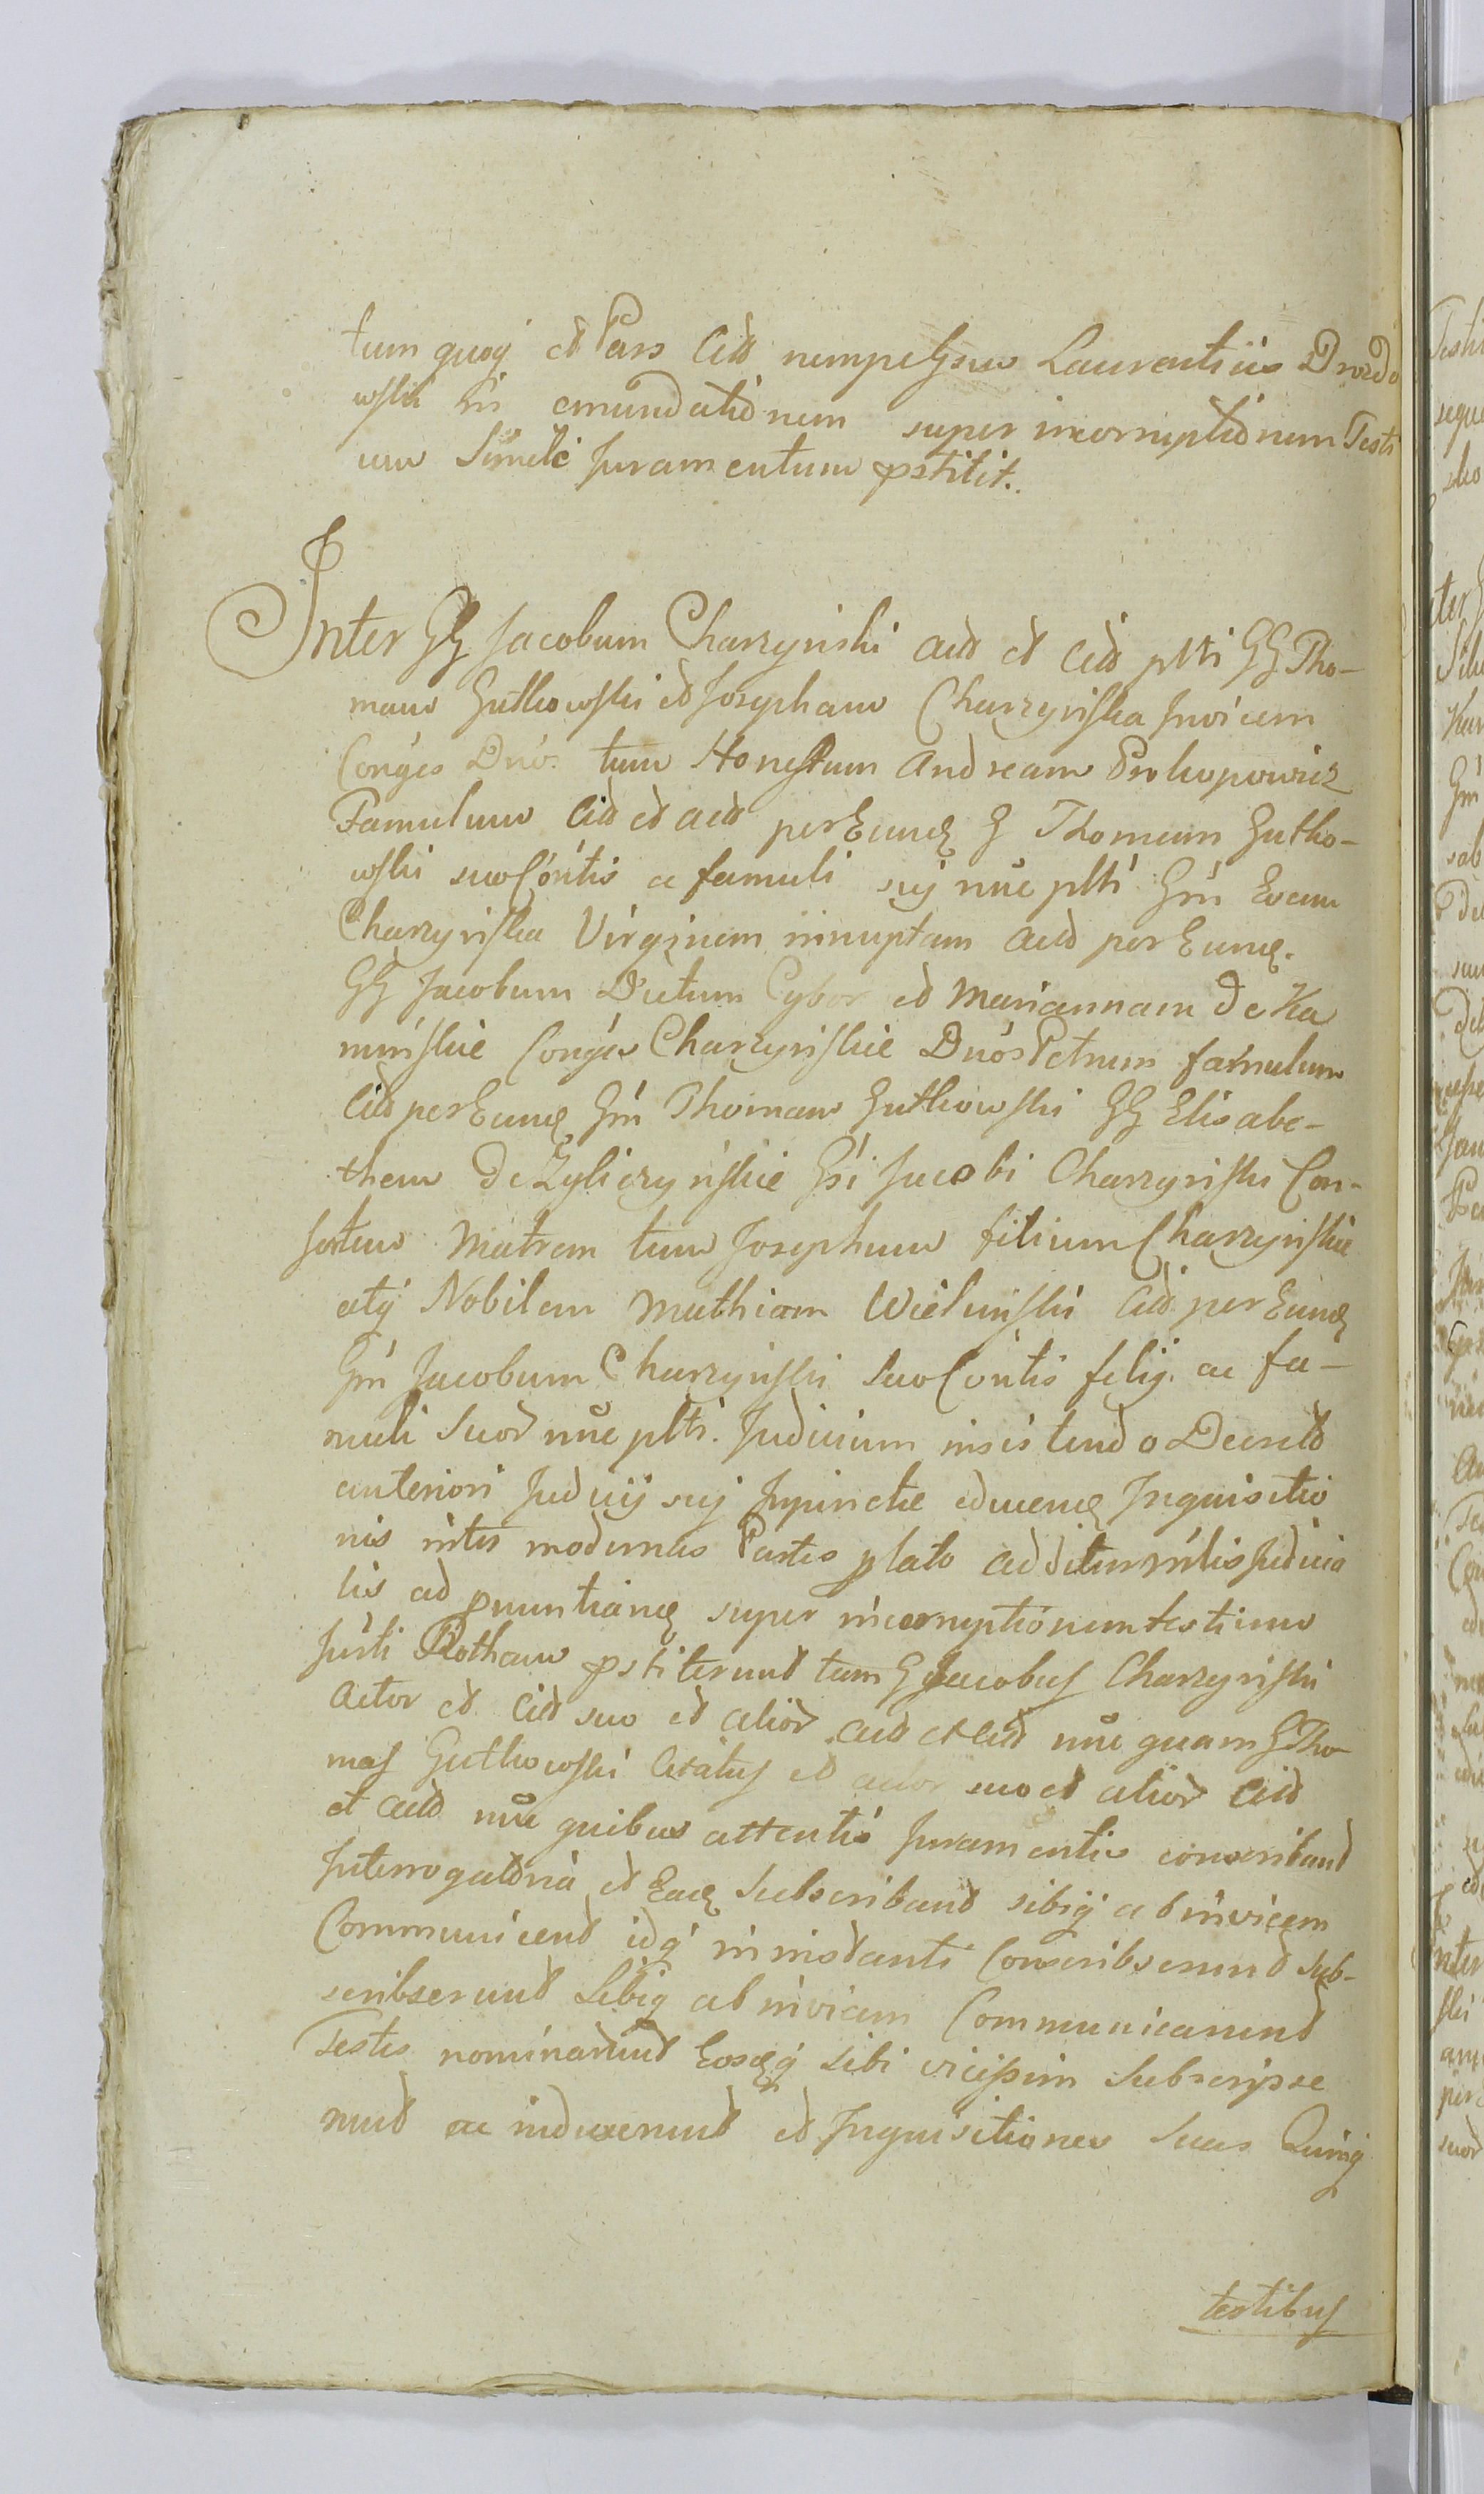 tum quoq et Pars Citt nempe Gsus Laurentius Drozdo
wski in emundationem super incorruptionem Testi
um Simile Juramentum pstitit.
Inter GG Jacobum Charzynski Actt et Citt plti GG Tho-
mam Gutkowski et Josepham Charzynska Invicem
Conges Dnos tum Honestum Andream Prokopowicz
Famulum Citt et Actt per Eund G Thomam Gutko-
wski suo Contis a famuli suj nuc plti Gm Evam
Charzynska Virginem innuptam Actt per Eund.
GG Jacobum Dictum Cybor et Mariannam de Ka
minskie Conges Charzynskie Dnos Petrum famulum
Citt per Eund Gm Thomam Gutkowski GG Elisabe-
them de Zyliczynskie Gsi Jacobi Charzynski Con-
sortem Matrem tum Josephum filium Charzynskie
atq Nobilem Mathiam Wielinski Citt per Eund
Gm Jacobum Charzynski suo Contis filij ac fa-
muli Suor nuc plti. Judicium insistendo Decreto
anteriori Judicij suj inpuncte educend Inquisitio
nis inter modernas Partes plato additum mlis Judicia
lis ad pnuntiand super incorruptionem testium
Jurti Rotham pstiterunt tam G Jacobus Charzynski
Actor et Citt suo et alior Actt et Citt nuc quam G Tho
mas Gutkowski Citatus et actor suo et alior Citt
et Actt nuc quibus attentis Juramentis conscribend
Interrogatoria et Ead Subscribend sibiq ab invicem
Communicend idq in instanti Conscribserunt sub-
scribserunt Sibiq ab invicem Communicarunt
Testes nominarunt Eosdq sibi vicissim Subscripse
runt ac induxerunt et Inquisitiones Suas Quinq
testibus